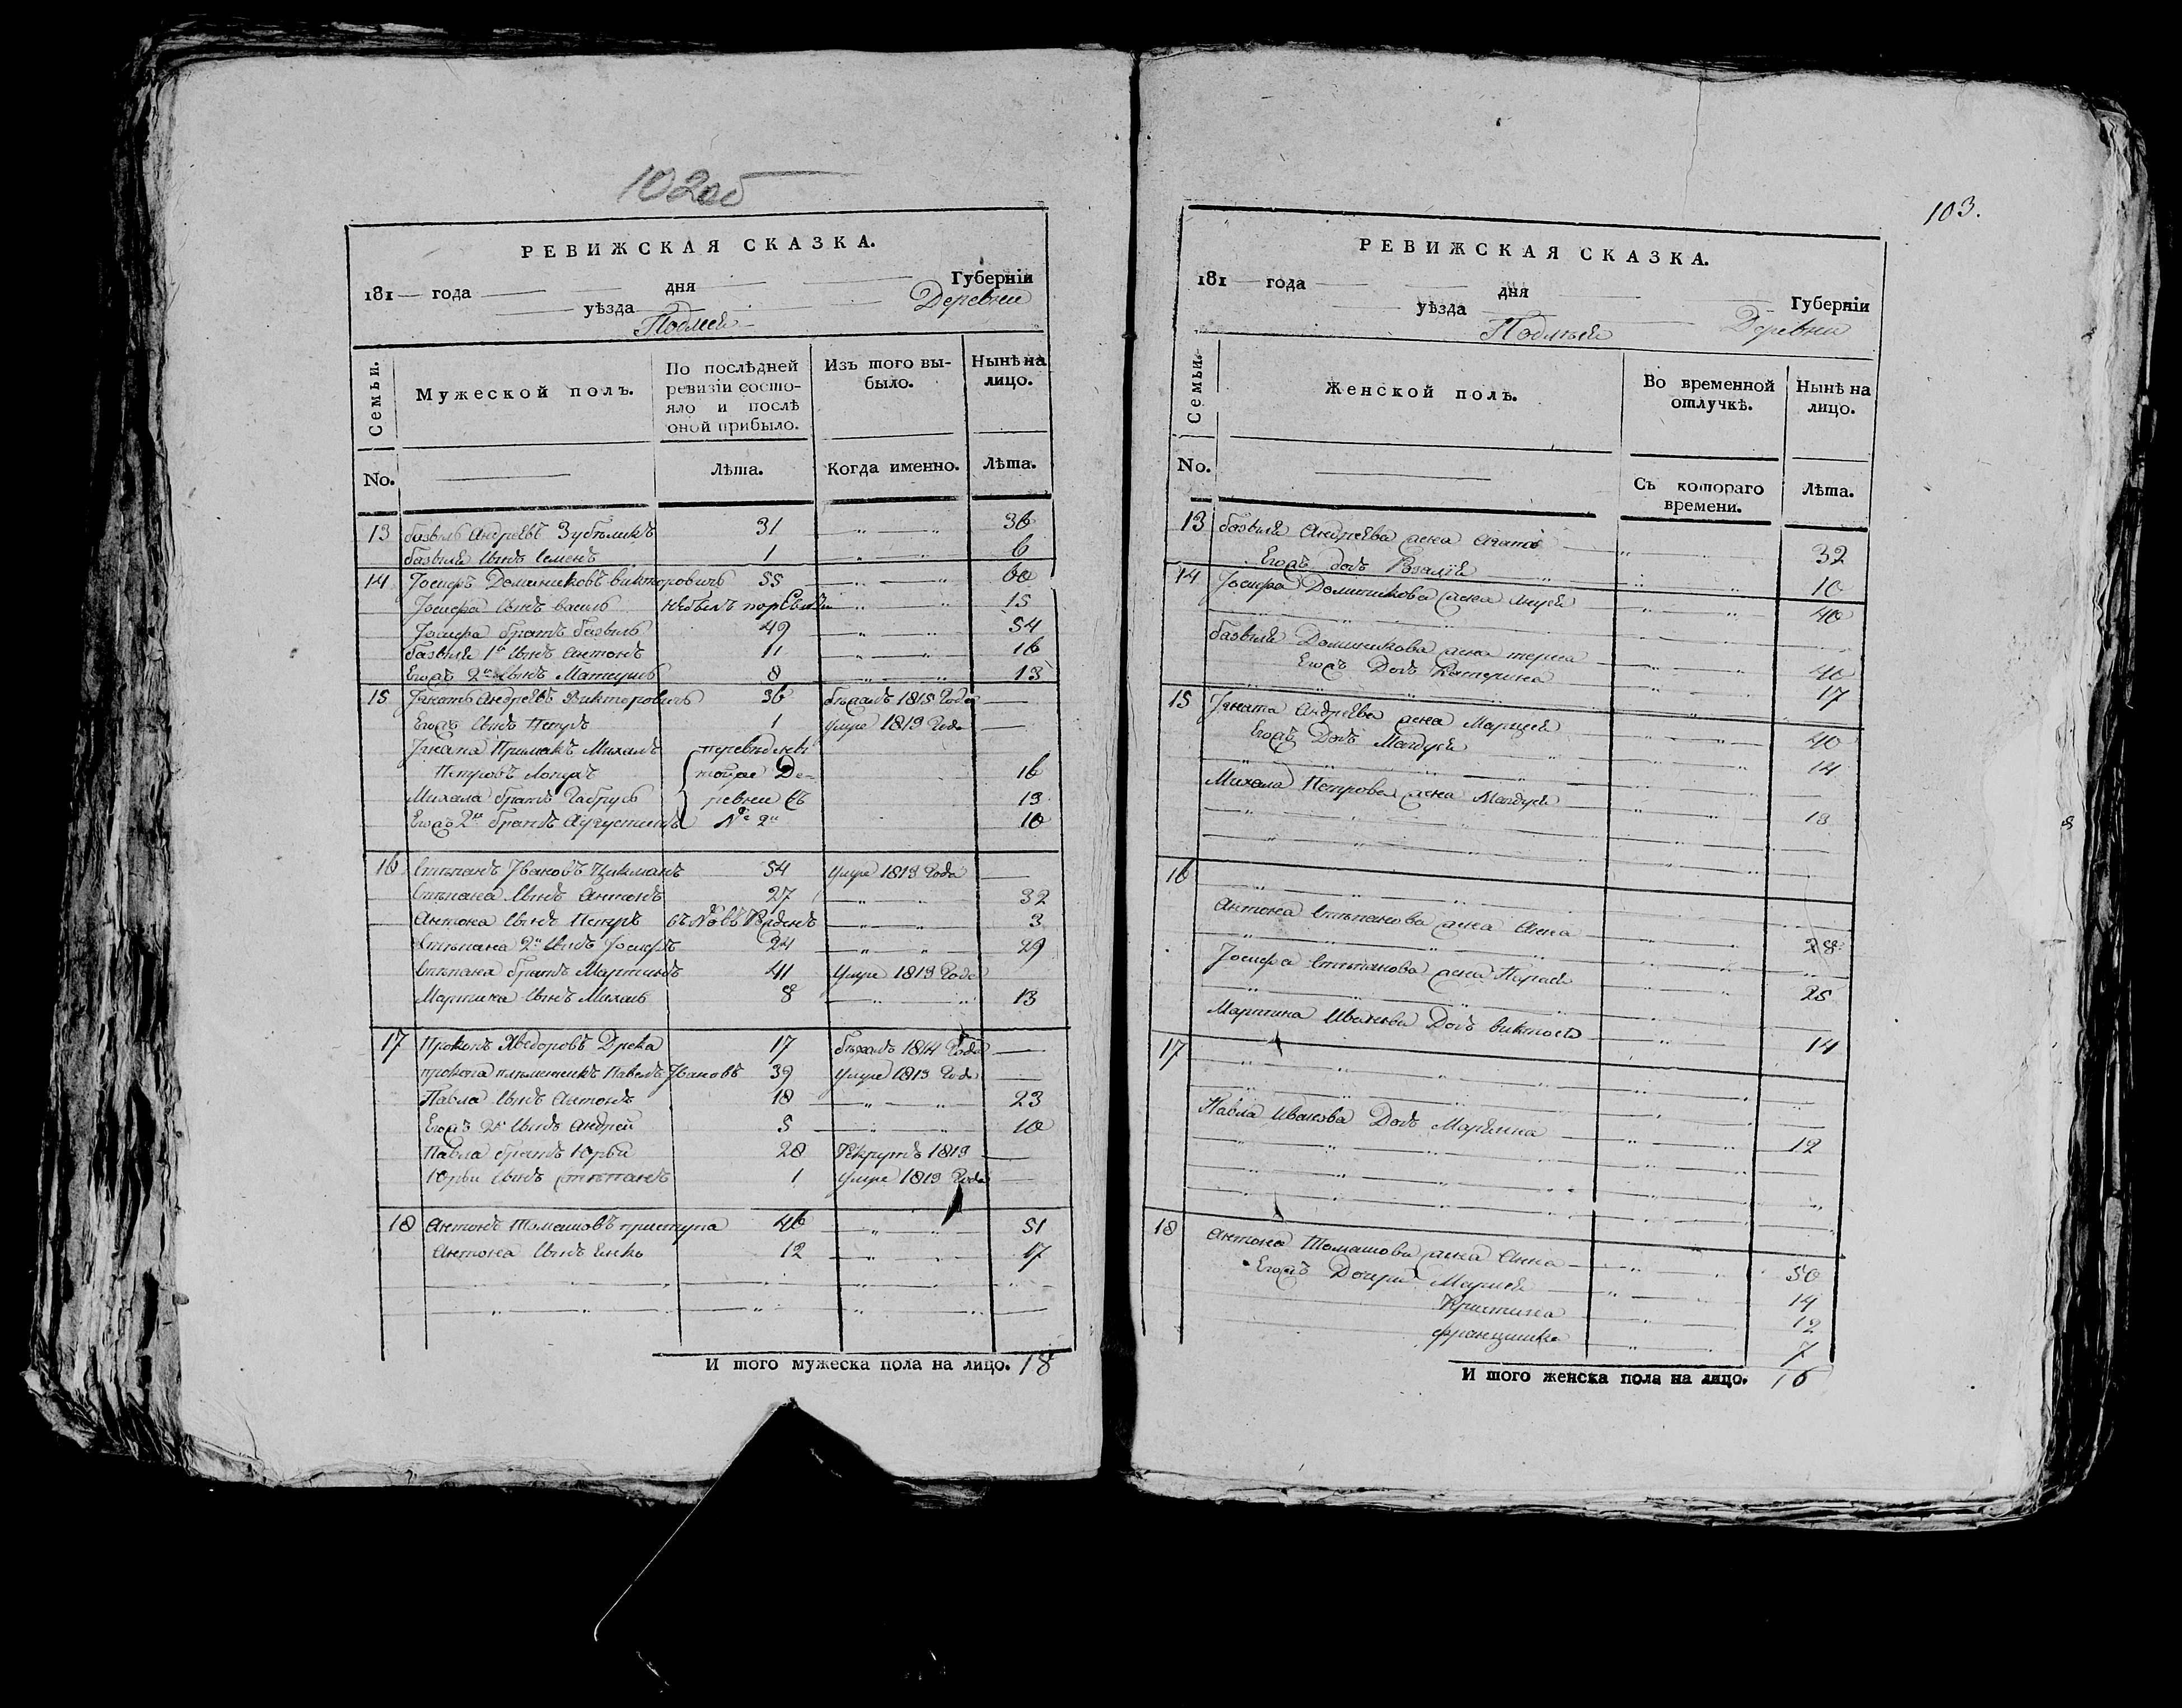 102об
РЕВИЖСКАЯ СКАЗКА.
181 года дня Губерніи
уѣзда Деревни
Подлей
Семьи. Мужеской полъ. По послѣдней ревизіи состояло и послѣ оной прибыло. Изъ того выбыло. Нынѣ на лицо.
No. Лѣта. Когда именно. Лѣта.
13 базыль Андреевъ 31 36
базыля сынъ Семенъ 1 6
14 Іосифъ Доминиковъ викторовичъ 55 60
Іосифа сынъ василь 15
Іосифа братъ базыль 49 54
базыля 1й сынъ Антонъ 11 16
Егожъ 2й сынъ Матеушъ 8 13
15 Игнатъ Андреевъ Викторовичъ 36 бежалъ 1815 Года
Егожъ сынъ Петръ 1 умре 1813 Года
Игната Примакъ Михалъ переведены
Петровъ той же Де- 16
Михала братъ Габрусь ревни съ 13
Егожъ 2й братъ Аугустинъ № 2й 10
16 Степанъ Ивановъ 54 умре 1813 Года
Степана сынъ Антонъ 27 32
Антона сынъ Петръ 3
Степана 2й сынъ Іосифъ 24 29
Степана братъ Мартинъ 41 умре 1813 Года
Мартина сынъ Михаль 8 13
17 Прокопъ Хведоровъ Дрека 17 бежалъ 1814 Года
прокопа племеникъ Павелъ Ивановъ 39 умре 1813 Года
Павла сынъ Антонъ 18 23
Егожъ 2й сынъ Андрей 5 10
Павла братъ Юрьи 28 Рекрутъ 1813
Юрьи сынъ степанъ 1 умре 1813 Года
18 Антонъ Томашовъ приступа 46 51
Антона сынъ 12 17
И того мужеска пола на лицо. 18
103.
РЕВИЖСКАЯ СКАЗКА.
181 года дня Губерніи
уѣзда Деревни
Подлей
Семьи. Женской полъ. Во временной отлучкѣ. Нынѣ на лицо.
No. Съ котораго времени. Лѣта.
13 базыля Андреева жена Агата 32
Егожъ дочь Розалія 10
14 Іосифа Доминикова жена 40
базыля Доминикова жена тереса 40
Егожъ Дочь Катерина 17
15 Игната Андреева жена Марцея 40
Егожъ Дочь Магдуся 14
Михала Петрова жена Магдуся 18
16
Антона Степанова жена Анна 28
Іосифа Степанова жена 25
Мартина Иванова Дочь 14
17
Павла Иванова Дочь Марьяна 12
18 Антона Томашова жена Анна 50
Егожъ Дочери Марися 14
Кристина 12
францишка 7
И того женска пола на лицо. 16